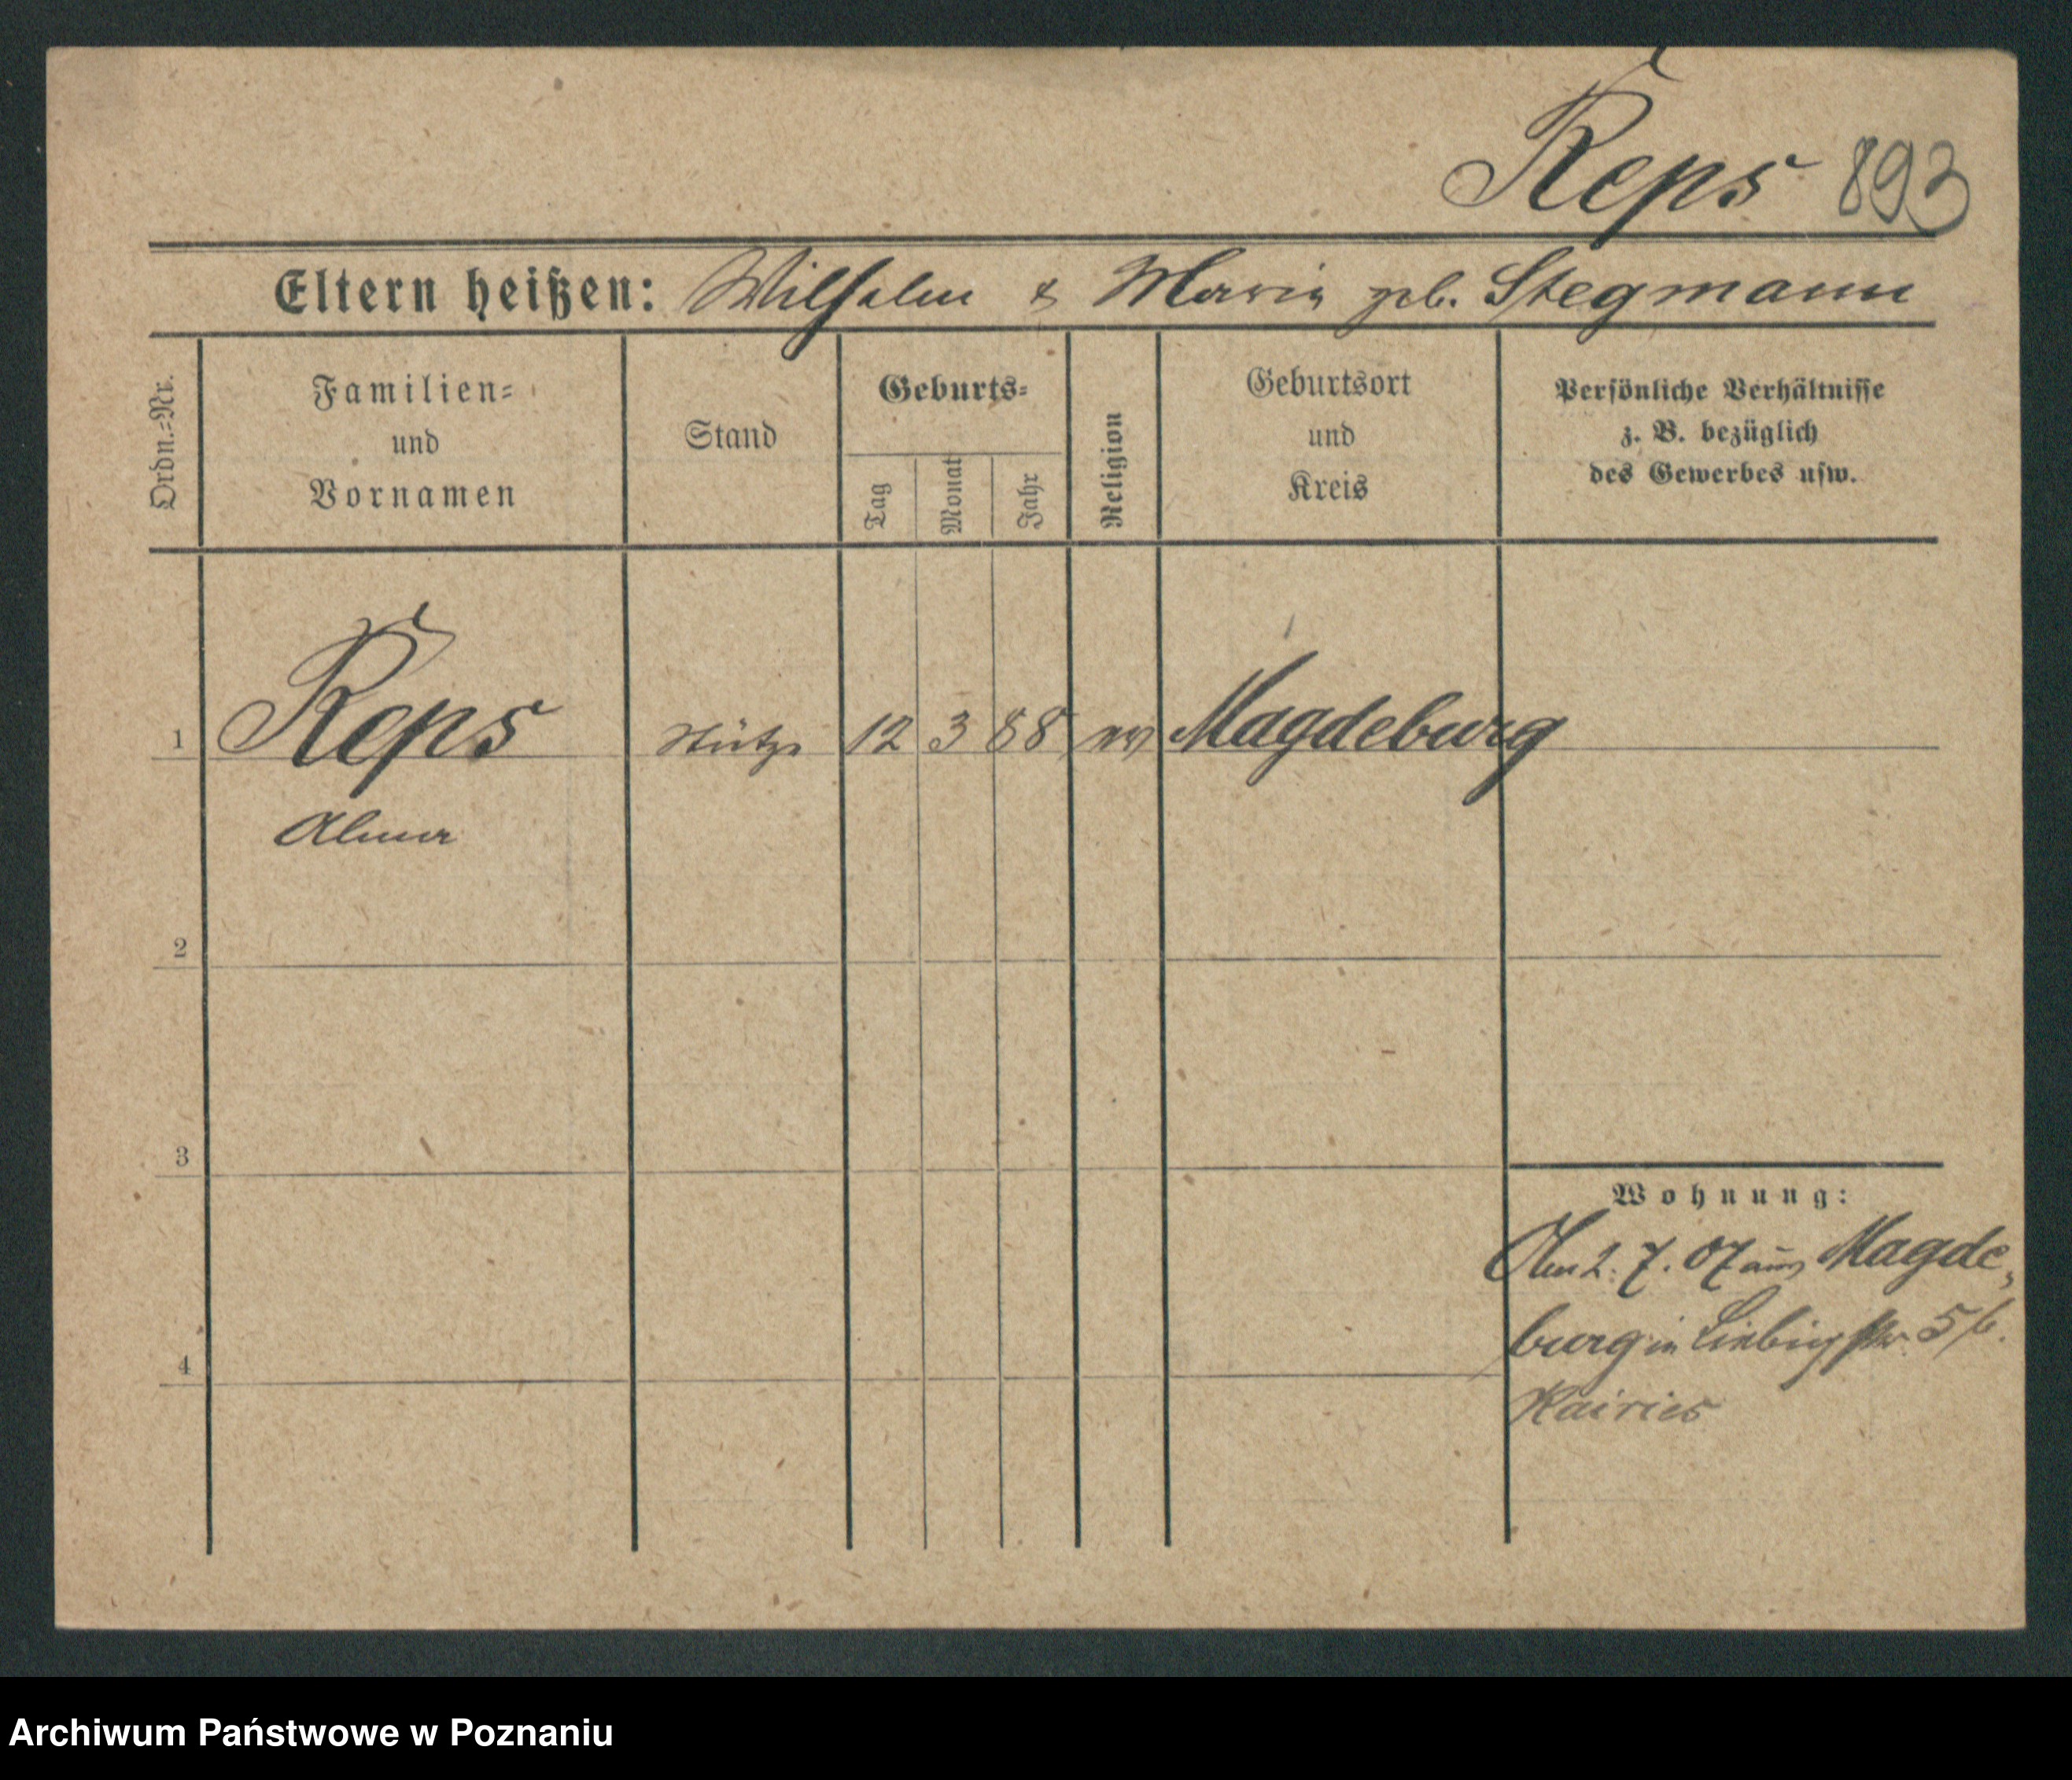 Reps 893
Eltern heißen: Wilhelm & Maria geb. Stegmann
Ordn.-Nr.
Familien-
und
Vornamen
Stand
Geburts-
Tag
Monat
Jahr
Religion
Geburtsort
und
Kreis
Persönliche Verhältnisse
z. B. bezüglich
des Gewerbes usw.
1 Reps Stütze 12 3 88 ev Magdeburg
Alma
2
3
4
Wohnung:
2. 7. 07 aus Magde-
burg in Liebigstr. 5/6.
Kairies
Archiwum Państwowe w Poznaniu